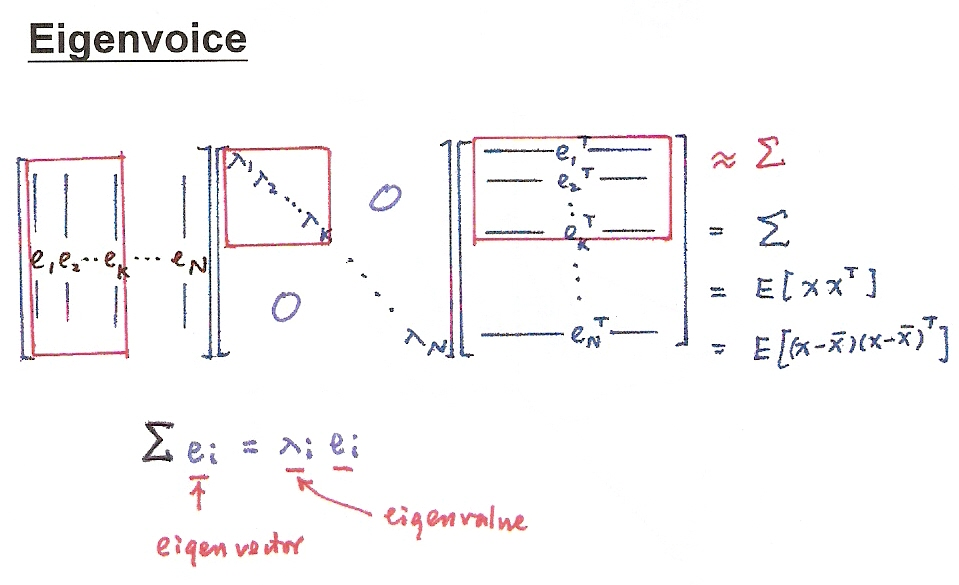 Eigenvoice
e₁ e₂ ⋯ e_K ⋯ e_N
λ₁ λ₂ ⋱ λ_K 0
0 ⋱ λ_N
e₁ᵀ
e₂ᵀ
⋮
e_Kᵀ
⋮
e_Nᵀ
≈ Σ
= Σ
= E[x xᵀ]
= E[(x-x̄)(x-x̄)ᵀ]
Σ eᵢ = λᵢ eᵢ
eigenvalue
eigenvector